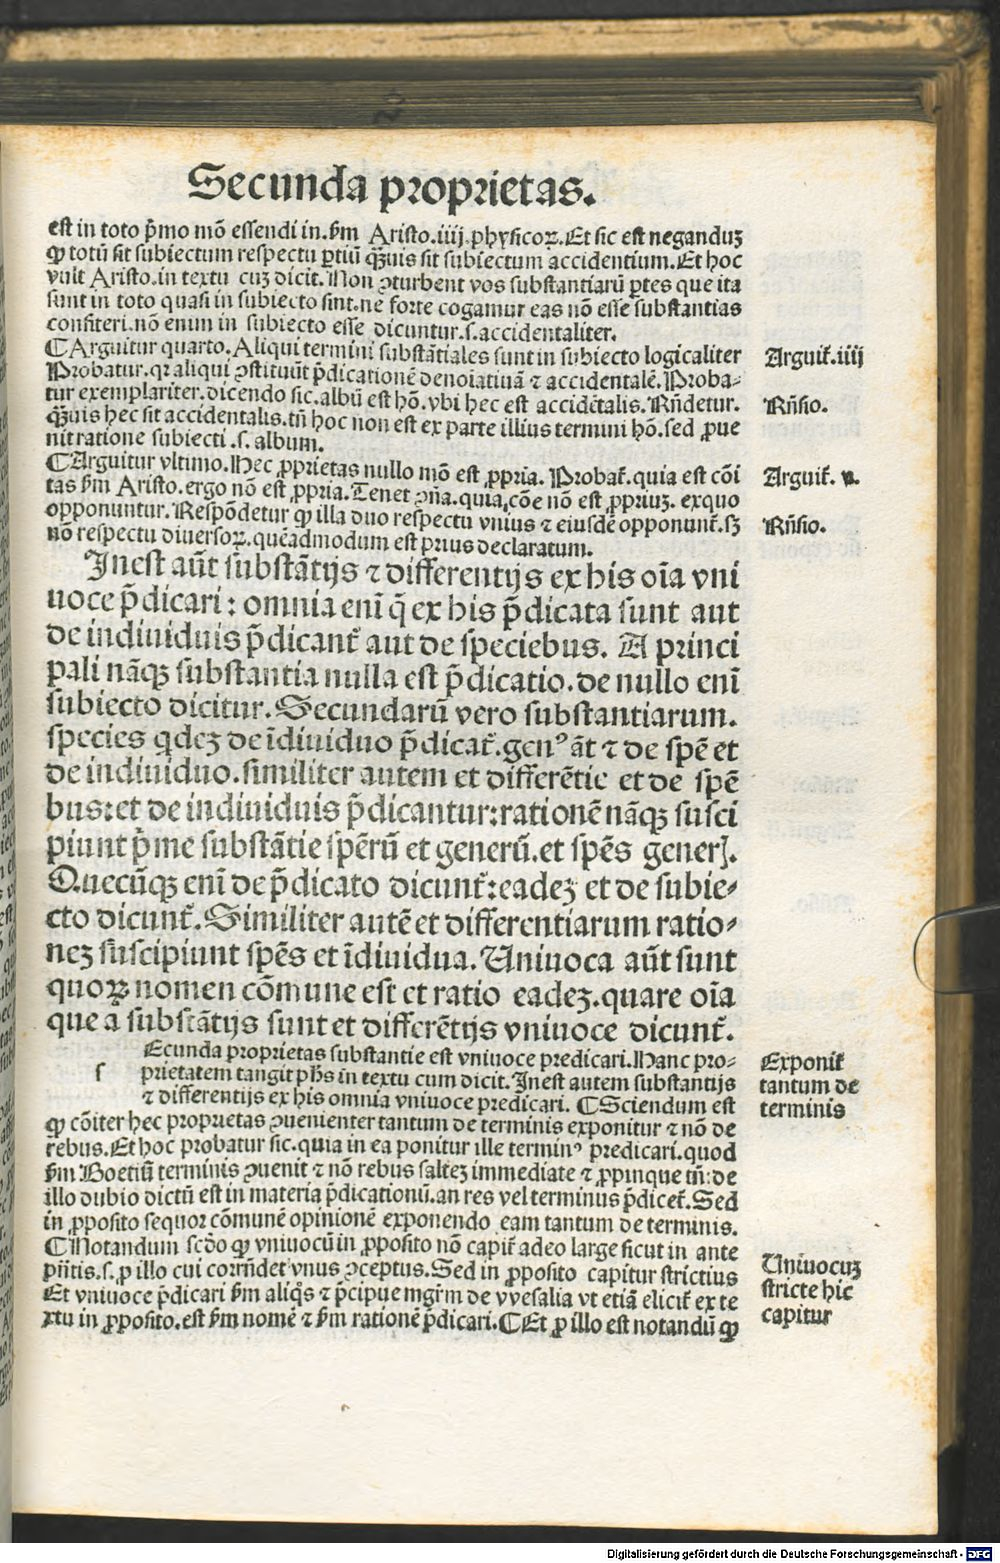 Secunda proprietas.
est in toto p̄mo mō essendi in. ẜm Aristo.iiij.phyſicoꝝ. Et sic est neganduꝫ
ꝙ totū sit subiectum respectu ꝑtiū qꝫuis sit subiectum accidentium. Et hoc
vult Aristo. in textu cuꝫ dicit. Non ꝯturbent vos substantiarū ꝑtes que ita
sunt in toto quasi in subiecto sint. ne forte cogamur eas nō esse substantias
confiteri. nō enim in subiecto esse dicuntur .s. accidentaliter.
¶Arguitur quarto. Aliqui termini substātiales sunt in subiecto logicaliter
Arguit̄. iiij
Probatur. qꝛ aliqui ꝯstituūt p̄dicationē denoiatiuā ⁊ accidentalē. Proba⸗
tur exemplariter. dicendo sic. albū est hō. vbi hec est accidētalis. Rn̄detur.
Rn̄sio.
qꝫuis hec sit accidentalis. tn̄ hoc non est ex parte illius termini hō. sed ꝓue
nit ratione subiecti .s. album.
¶Arguitur vltimo. Hec ꝓprietas nullo mō est ꝓpria. Probat̄. quia est cōi
Arguit̄. v.
tas ẜm Aristo. ergo nō est ꝓpria. Tenet ꝯn̄a. quia cōe nō est ꝓpriuꝫ. exquo
opponuntur. Respōdetur ꝙ illa duo respectu vnius ⁊ eiusdē opponunt̄. sꝫ
Rn̄sio.
nō respectu diuersoꝝ. quēadmodum est prius declaratum.
Inest aūt substātijs ⁊ differentijs ex his oīa vni
uoce p̄dicari: omnia enī q̄ ex his p̄dicata sunt aut
de indiuiduis p̄dicant̄ aut de speciebus. A princi
pali nāqꝫ substantia nulla est p̄dicatio. de nullo enī
subiecto dicitur. Secundarū vero substantiarum.
species qdeꝫ de īdiuiduo p̄dicat̄. genꝰ āt ⁊ de spē et
de indiuiduo. similiter autem et differētie et de spē
bus: et de indiuiduis p̄dicantur: rationē nāqꝫ susci
piunt p̄me substātie spērū et generū. et spēs generꝭ.
Quecūqꝫ enī de p̄dicato dicunt̄: eadeꝫ et de subie⸗
cto dicunt̄. Similiter autē et differentiarum ratio⸗
neꝫ suscipiunt spēs et īdiuidua. Uniuoca aūt sunt
quoꝝ nomen cōmune est et ratio eadeꝫ. quare oīa
que a substātijs sunt et differētijs vniuoce dicunt̄.
s
Ecunda proprietas substantie est vniuoce predicari. Hanc pro⸗
Exponit̄
prietatem tangit ph̄s in textu cum dicit. Inest autem substantijs
tantum de
⁊ differentijs ex his omnia vniuoce predicari. ¶Sciendum est
terminis
ꝙ cōiter hec proprietas ꝯuenienter tantum de terminis exponitur ⁊ nō de
rebus. Et hoc probatur sic. quia in ea ponitur ille terminꝰ predicari. quod
ẜm Boetiū terminis ꝯuenit ⁊ nō rebus salteꝫ immediate ⁊ ꝓpinque tn̄: de
illo dubio dictū est in materia p̄dicationū. an res vel terminus p̄dicet̄. Sed
in ꝓposito sequor cōmunē opinionē exponendo eam tantum de terminis.
¶Notandum scdo ꝙ vniuocū in ꝓposito nō capit̄ adeo large sicut in ante
p̄n̄tis .s. ꝓ illo cui corrn̄det vnus ꝯceptus. Sed in ꝓposito capitur strictius
Uniuocuꝫ
stricte hic
Et vniuoce p̄dicari ẜm aliqͥs ⁊ p̄cipue mgr̄m de vvesalia vt etiā elicit̄ ex te
capitur
xtu in ꝓposito. est ẜm nomē ⁊ ẜm rationē p̄dicari. ¶Et ꝓ illo est notandū ꝙ
Digitalisierung gefördert durch die Deutsche Forschungsgemeinschaft - DFG